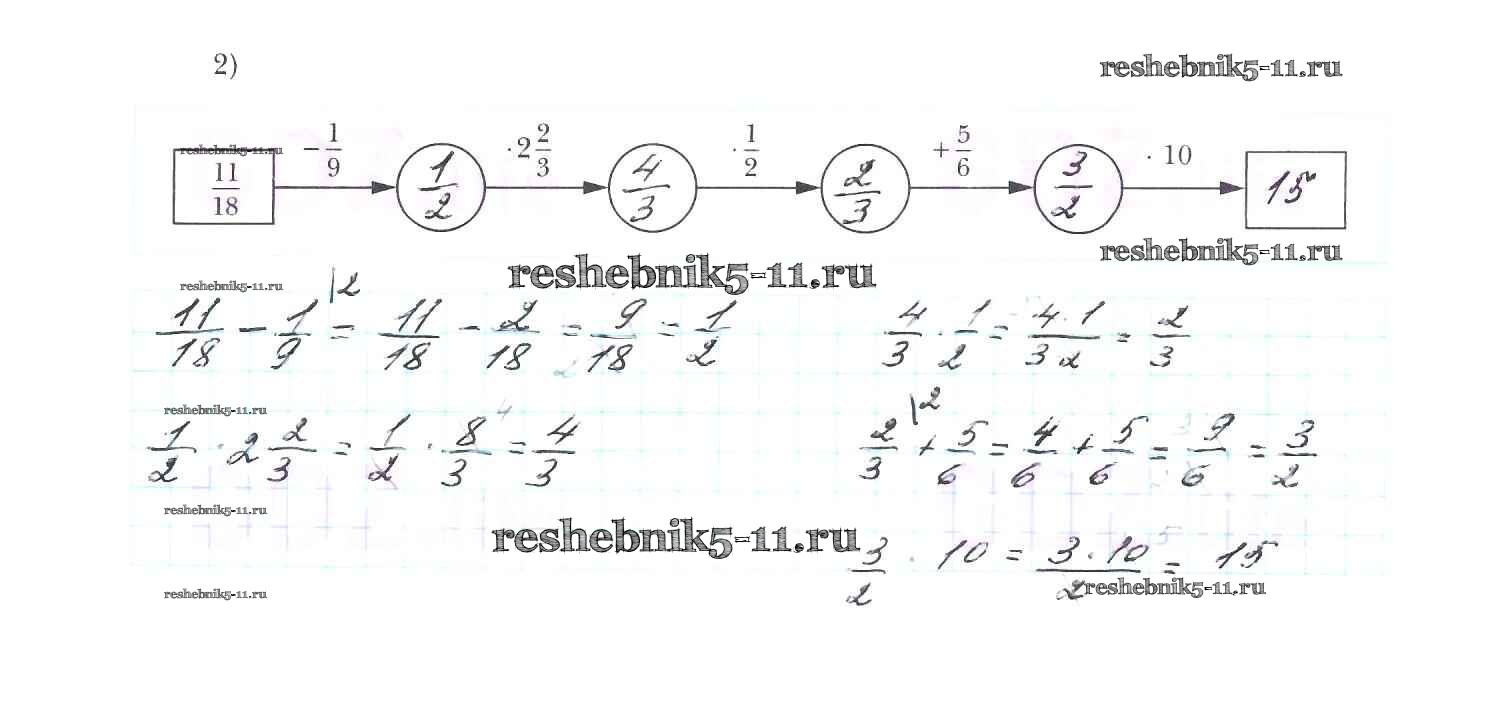 2) reshebnik5-11.ru
reshebnik5-11.ru
11/18 − 1/9 1/2 · 2 2/3 4/3 · 1/2 2/3 + 5/6 3/2 · 10 15
reshebnik5-11.ru
reshebnik5-11.ru reshebnik5-11.ru
11/18 − 1/9 |2 = 11/18 − 2/18 = 9/18 = 1/2 4/3 · 1/2 = 4·1/3 2 = 2/3
reshebnik5-11.ru
1/2 · 2 2/3 = 1/2 · 8/3 = 4/3 2/3 |2 + 5/6 = 4/6 + 5/6 = 9/6 = 3/2
reshebnik5-11.ru
reshebnik5-11.ru
3/2 · 10 = 3·10/2 = 15
reshebnik5-11.ru reshebnik5-11.ru